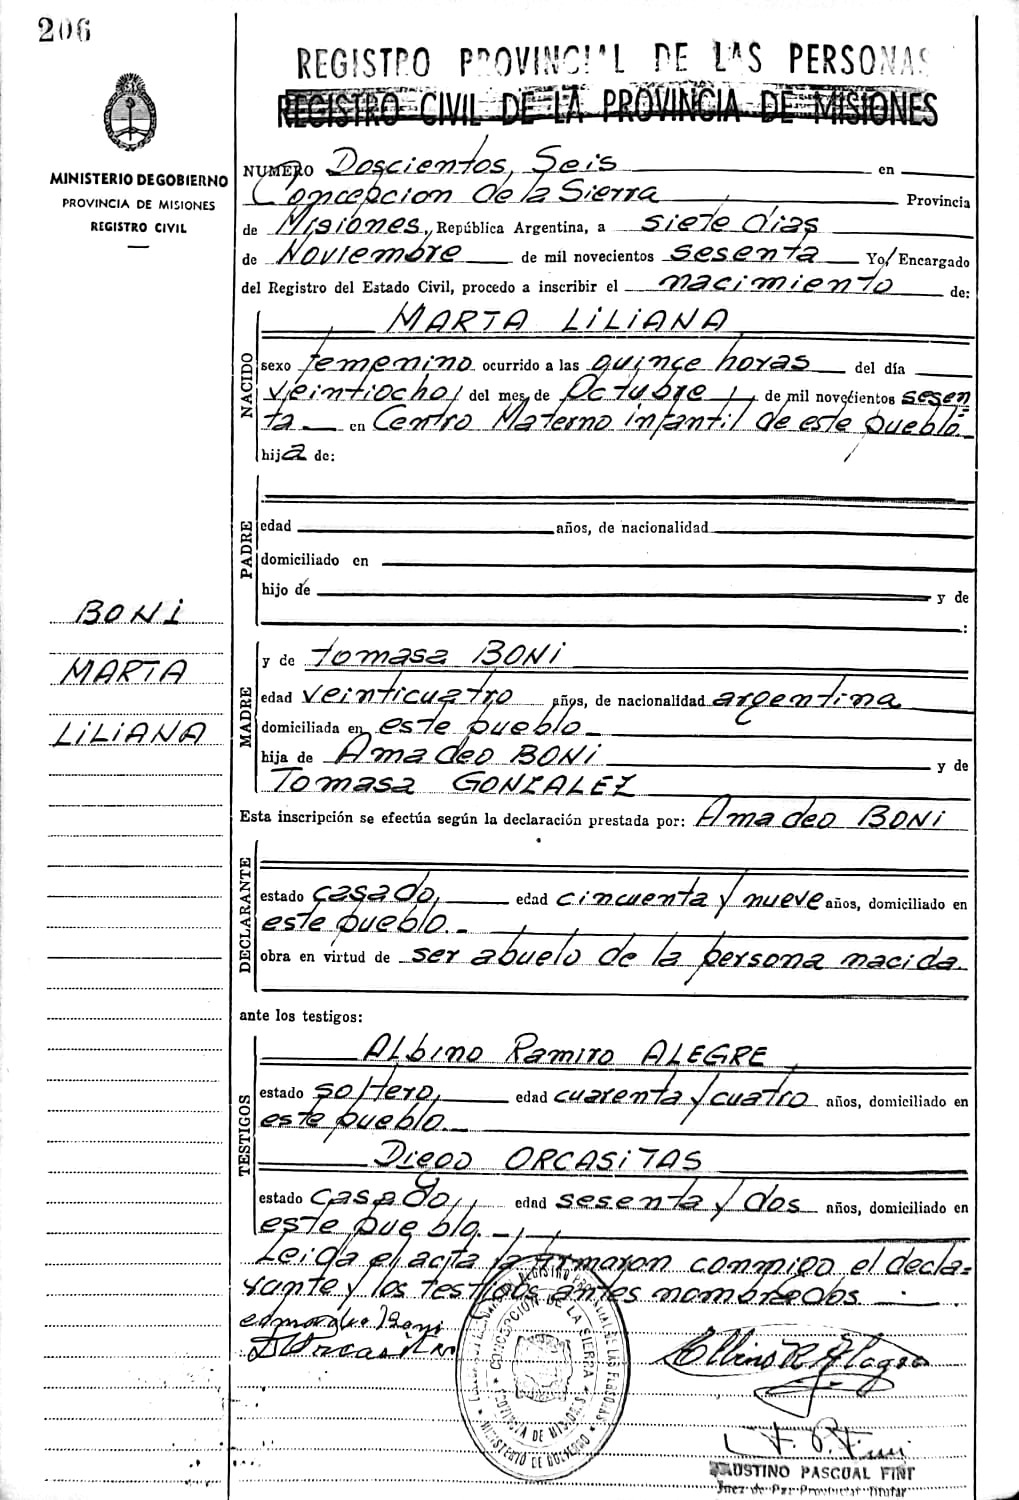 206
REGISTRO PROVINCIAL DE LAS PERSONAS
REGISTRO CIVIL DE LA PROVINCIA DE MISIONES
MINISTERIO DE GOBIERNO
PROVINCIA DE MISIONES
REGISTRO CIVIL
NUMERO Doscientos, Seis en
Concepcion de la Sierra Provincia
de Misiones, República Argentina, a siete dias
de Noviembre de mil novecientos sesenta Yo/Encargado
del Registro del Estado Civil, procedo a inscribir el nacimiento de:
NACIDO
MARTA LILIANA
sexo femenino ocurrido a las quince horas del día
veintiocho, del mes de Octubre, de mil novecientos sesen
ta en Centro Materno infantil de este pueblo
hija de:
PADRE
edad años, de nacionalidad
domiciliado en
hijo de y de
:
BONI
MARTA
LILIANA
MADRE
y de tomasa BONI
edad veinticuatro años, de nacionalidad argentina
domiciliada en este pueblo
hija de Amadeo BONI y de
Tomasa GONZALEZ
Esta inscripción se efectúa según la declaración prestada por: Amadeo BONI
DECLARANTE
estado casado, edad cincuenta y nueve años, domiciliado en
este pueblo.
obra en virtud de ser abuelo de la persona nacida.
ante los testigos:
TESTIGOS
Albino Ramiro ALEGRE
estado soltero, edad cuarenta y cuatro años, domiciliado en
este pueblo.
Diego ORCASITAS
estado casado, edad sesenta y dos años, domiciliado en
este pueblo.
Leida el acta la firmaron conmigo el decla-
rante y los testigos antes nombrados
CONCEPCION DE LA SIERRA
PROVINCIA DE MISIONES
MINISTERIO DE GOBIERNO
FAUSTINO PASCUAL FINI
Juez de Paz Provincial Titular